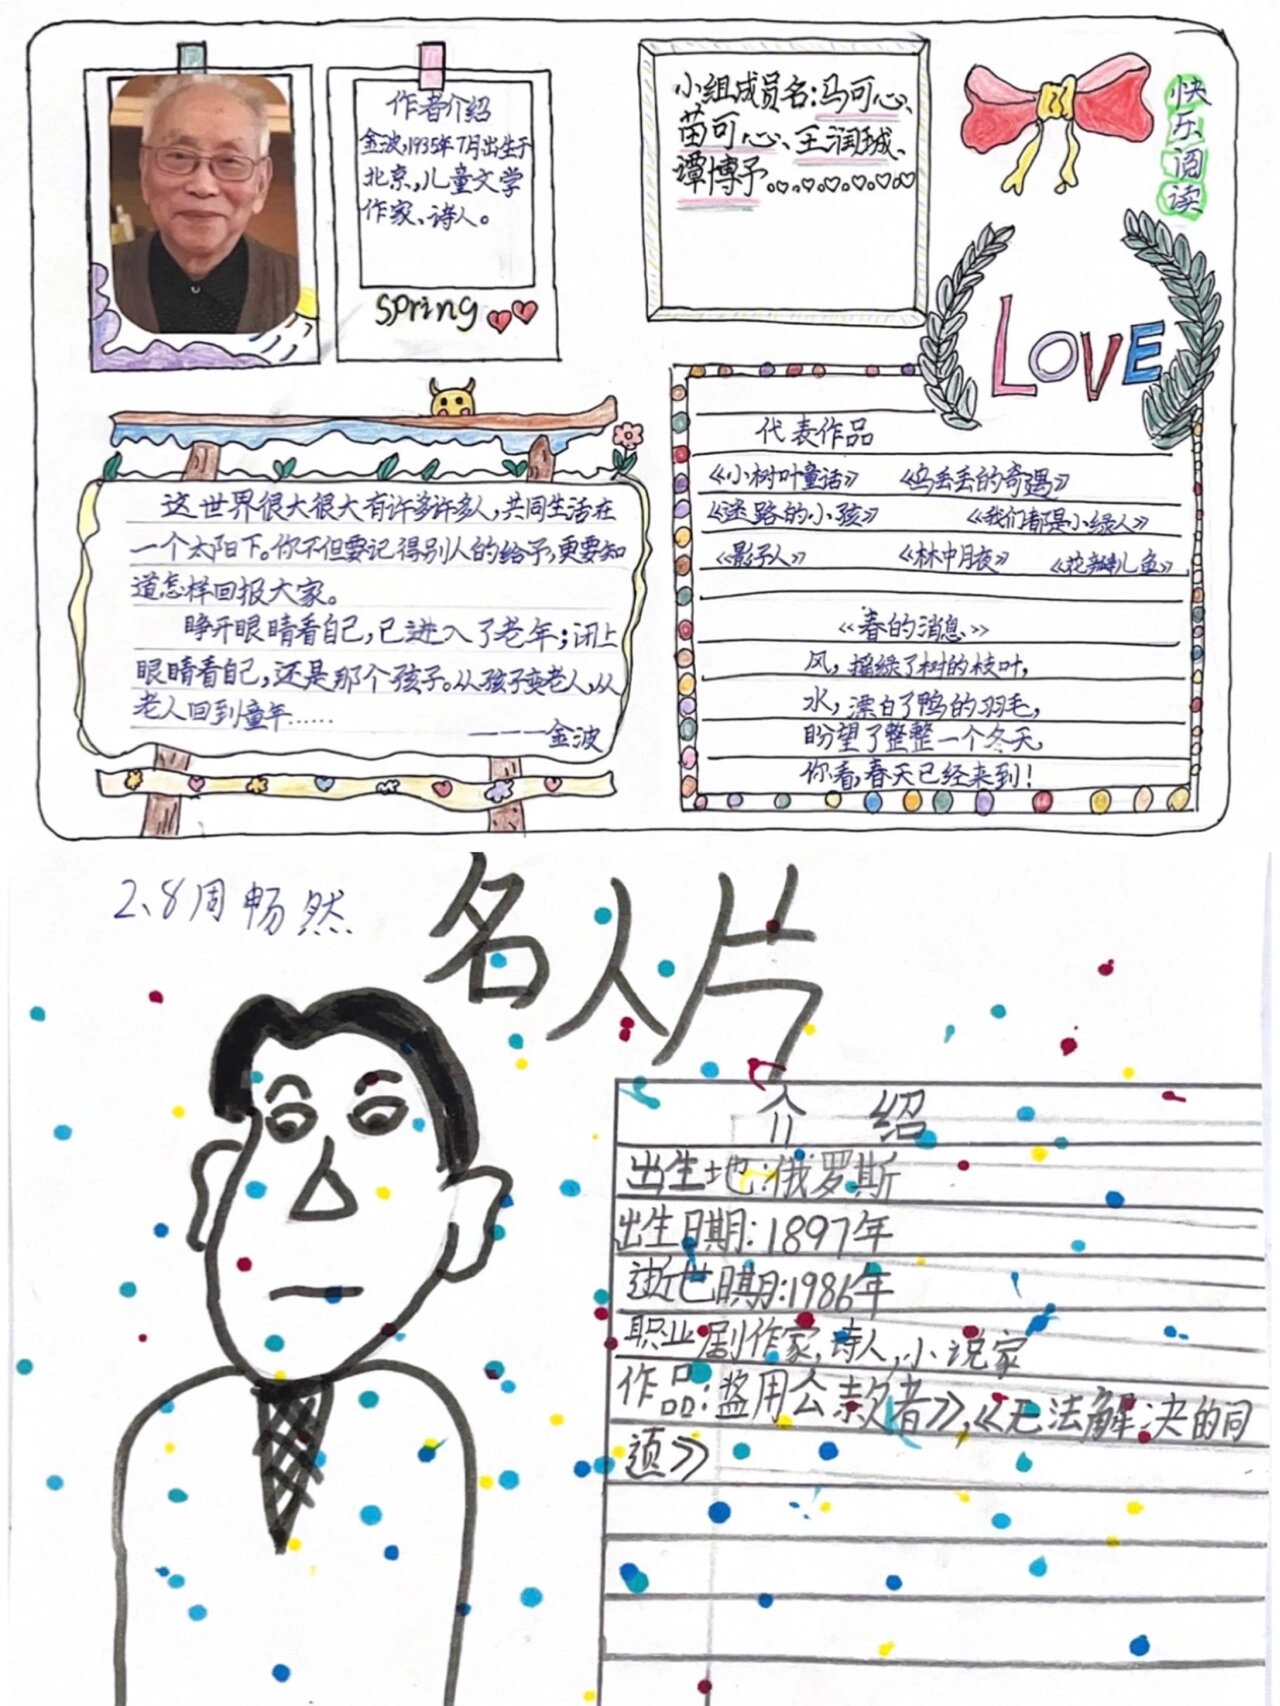 作者介绍
金波,1935年7月出生于
北京,儿童文学
作家、诗人。
spring
小组成员名:马可心、
苗可心、王润珹、
谭博予。
快乐阅读
LOVE
这世界很大很大有许多许多人,共同生活在
一个太阳下。你不但要记得别人的给予,更要知
道怎样回报大家。
睁开眼睛看自己,已进入了老年;闭上
眼睛看自己,还是那个孩子。从孩子变老人,从
老人回到童年……
———金波
代表作品
《小树叶童话》 《乌丢丢的奇遇》
《迷路的小孩》 《我们都是小绿人》
《影子人》 《林中月夜》 《花瓣儿鱼》
《春的消息》
风,摇绿了树的枝叶,
水,漂白了鸭的羽毛,
盼望了整整一个冬天,
你看,春天已经来到!
2、8周畅然
名人片
介 绍
出生地:俄罗斯
出生日期:1897年
逝世日期:1986年
职业剧作家,诗人,小说家
作品:盗用公款者》,《无法解决的问
题》